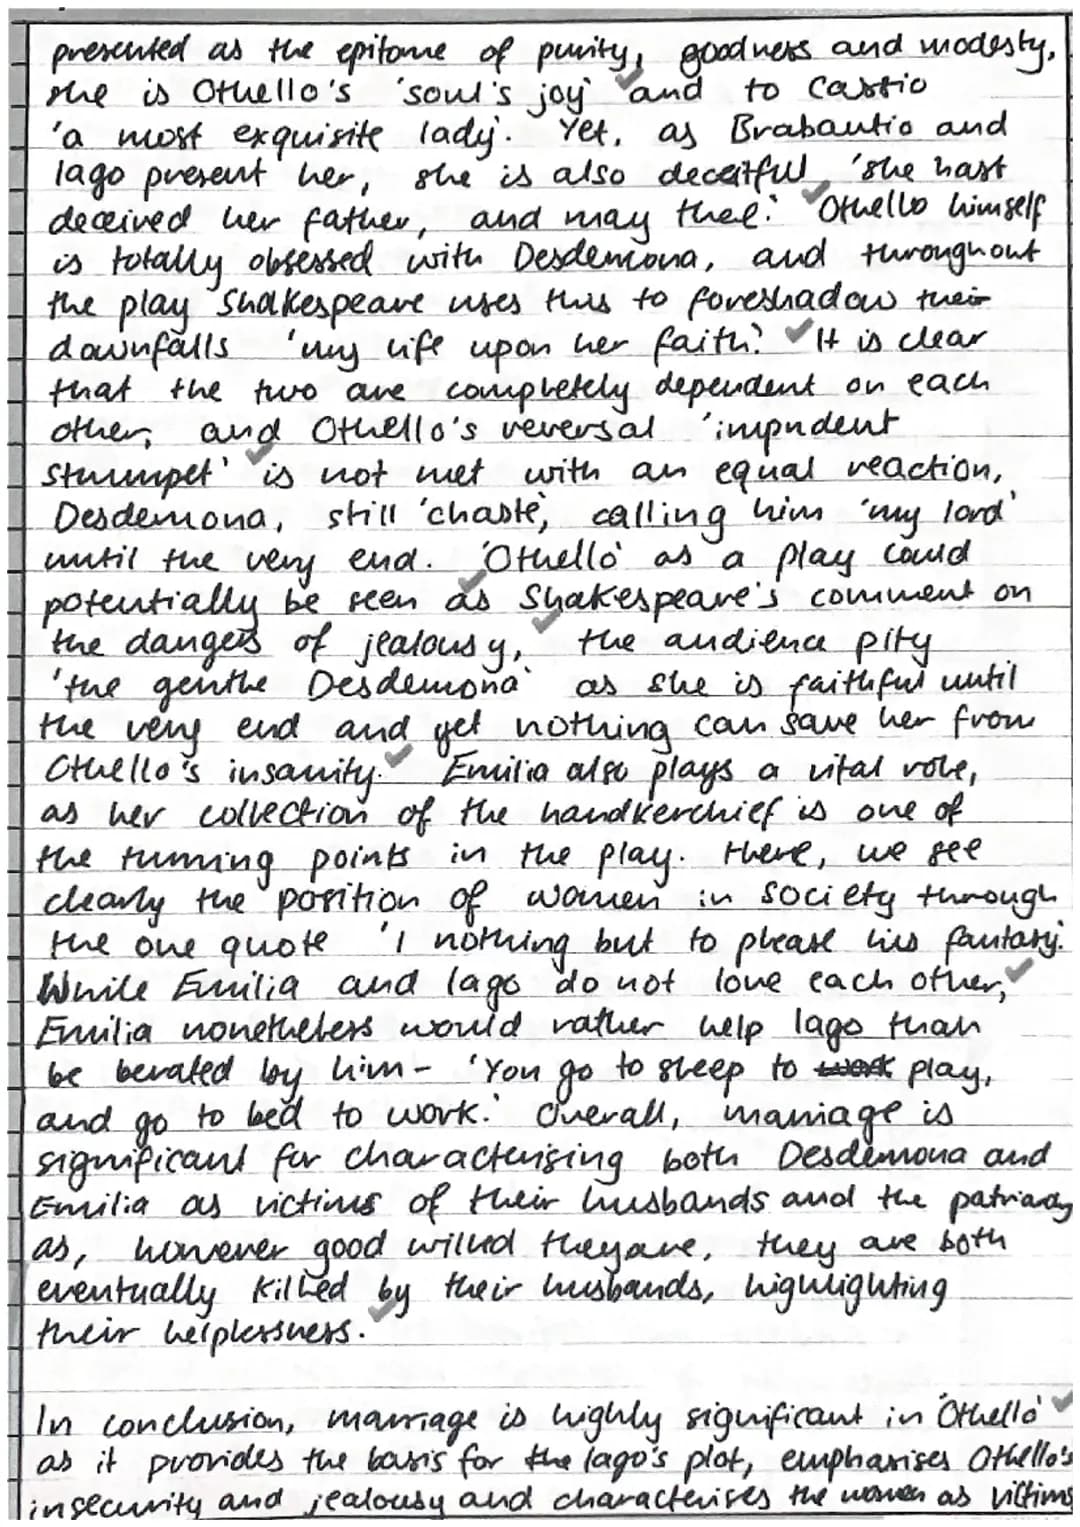 presented as the epitome of purity, goodness and modesty,
she is Othello's 'soul's joy' and to Cassio
'a most exquisite lady'. Yet, as Brabantio and
Iago present her, she is also deceitful, 'she hast
deceived her father, and may thee'. Othello himself
is totally obsessed with Desdemona, and throughout
the play Shakespeare uses this to foreshadow their
downfalls 'my life upon her faith'. It is clear
that the two are completely dependent on each
other, and Othello's reversal 'impudent
strumpet' is not met with an equal reaction,
Desdemona, still 'chaste', calling him 'my lord'
until the very end. 'Othello' as a play could
potentially be seen as Shakespeare's comment on
the dangers of jealousy, the audience pity
'the gentle Desdemona' as she is faithful until
the very end and yet nothing can save her from
Othello's insanity. Emilia also plays a vital role,
as her collection of the handkerchief is one of
the turning points in the play. Here, we see
clearly the position of women in society through
the one quote 'I nothing but to please his fantasy'.
While Emilia and Iago do not love each other,
Emilia nonetheless would rather help Iago than
be berated by him - 'You go to sleep to work play,
and go to bed to work.' Overall, marriage is
significant for characterising both Desdemona and
Emilia as victims of their husbands and the patriarchy
as, however good willed they are, they are both
eventually killed by their husbands, highlighting
their helplessness.
In conclusion, marriage is highly significant in 'Othello'
as it provides the basis for the Iago's plot, emphasises Othello's
insecurity and jealousy and characterises the women as victims